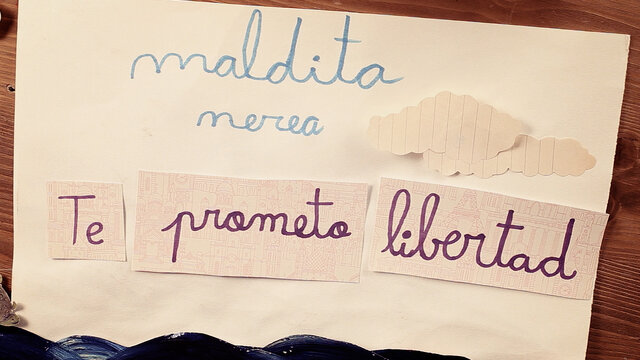 maldita
nerea
Te prometo libertad